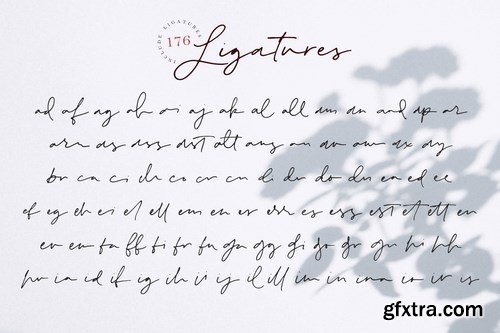 INCLUDE LIGATURES
176
Ligatures
ad af ag ah ai aj ak al all am an and ap ar
arn as ass ast att aus av aw ax ay
br ca ci ch co cr cu di du do du ea ed ee
ef eg eh ei el ell em en er err es ess est et ett eu
ev ew fa ff fi fr fu ga gg gi go gr gu hi hh
hr ia id if ig ih ir ij il ill im in inn io ir is
gfxtra.com